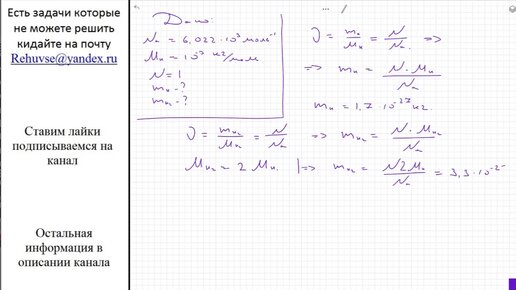 Есть задачи которые
не можете решить
кидайте на почту
Rehuvse@yandex.ru
Ставим лайки
подписываемся на
канал
Остальная
информация в
описании канала
Дано:
Nₐ = 6,022 · 10³ моль⁻¹
Mн = 10⁻³ кг/моль
N = 1
mн - ?
mн₂ - ?
ν = mн/Mн = N/Nₐ ⇒
⇒ mн = N · Mн/Nₐ
mн = 1,7 · 10⁻²⁷ кг.
ν = mн₂/Mн₂ = N/Nₐ ⇒ mн₂ = N · Mн₂/Nₐ
Mн₂ = 2 Mн. |⇒ mн₂ = N2Mн/Nₐ = 3,3 · 10⁻²